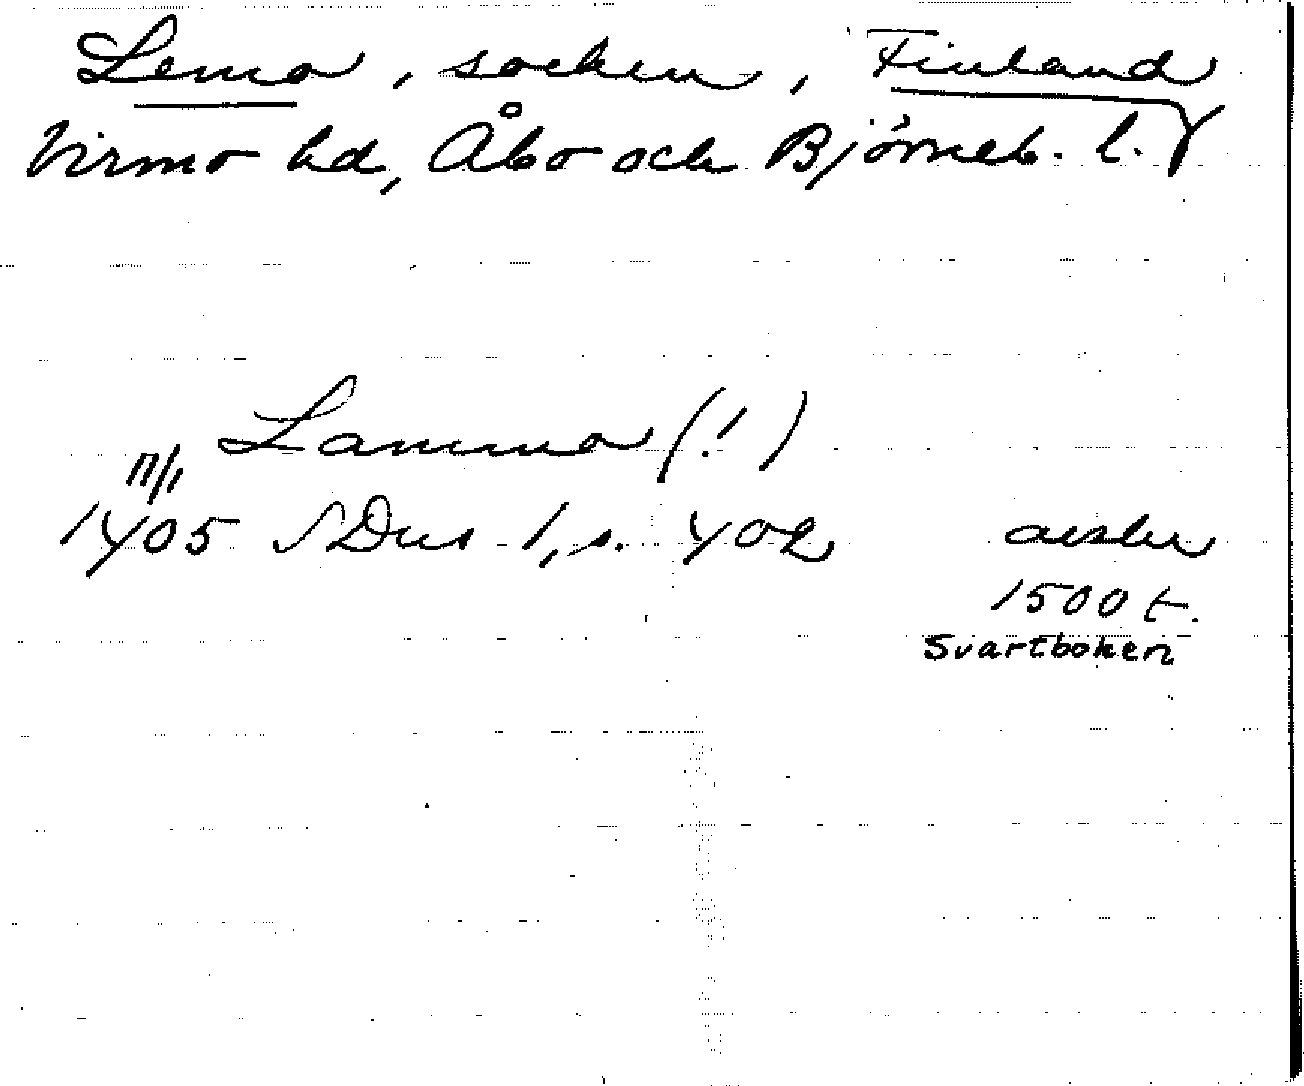 Lemo, socken, Finland
Virmo hd, Åbo och Björneb. l.
Lammo (!)
11/1
1405 SDns 1, s. 402 avskr
1500 t.
Svartboken